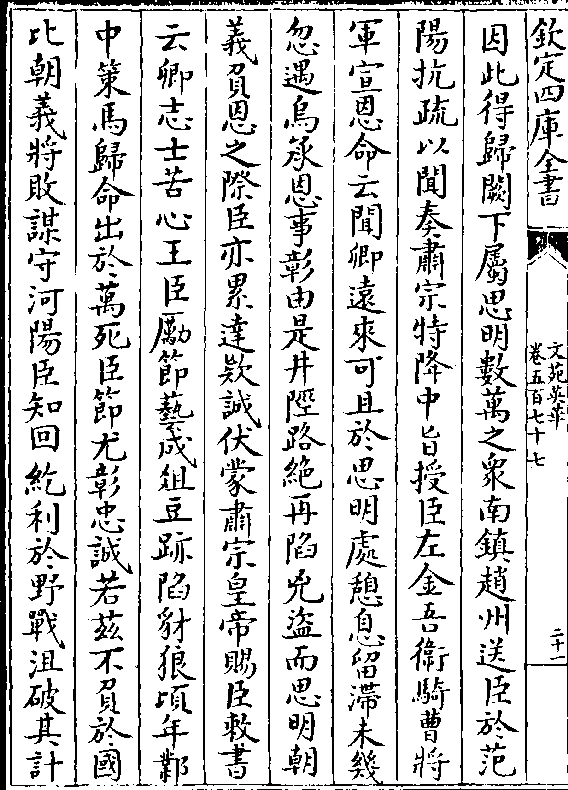 欽定四庫全書
文苑英華
卷五百七十七
二十一
因此得歸闕下屬思明數萬之衆南鎮趙州送臣於范
陽抗疏以聞奏肅宗特降中旨授臣左金吾衛騎曹將
軍宣恩命云聞卿遠來可且於思明處憩息留滯未幾
忽遇烏承恩事彰由是井陘路絕再陷兇盜而思明朝
義負恩之際臣亦累達欵誠伏蒙肅宗皇帝賜臣敕書
云卿志士苦心王臣勵節藝成俎豆跡陷豺狼頃年鄴
中策馬歸命出於萬死臣節尤彰忠誠若茲不負於國
比朝義將敗謀守河陽臣知回紇利於野戰沮破其計